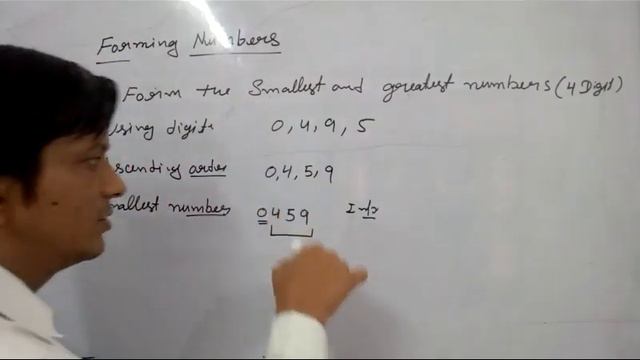 Forming Numbers
Form the Smallest and greatest numbers (4 Digit)
using digits 0, 4, 9, 5
scending order 0, 4, 5, 9
mallest numbers 0459